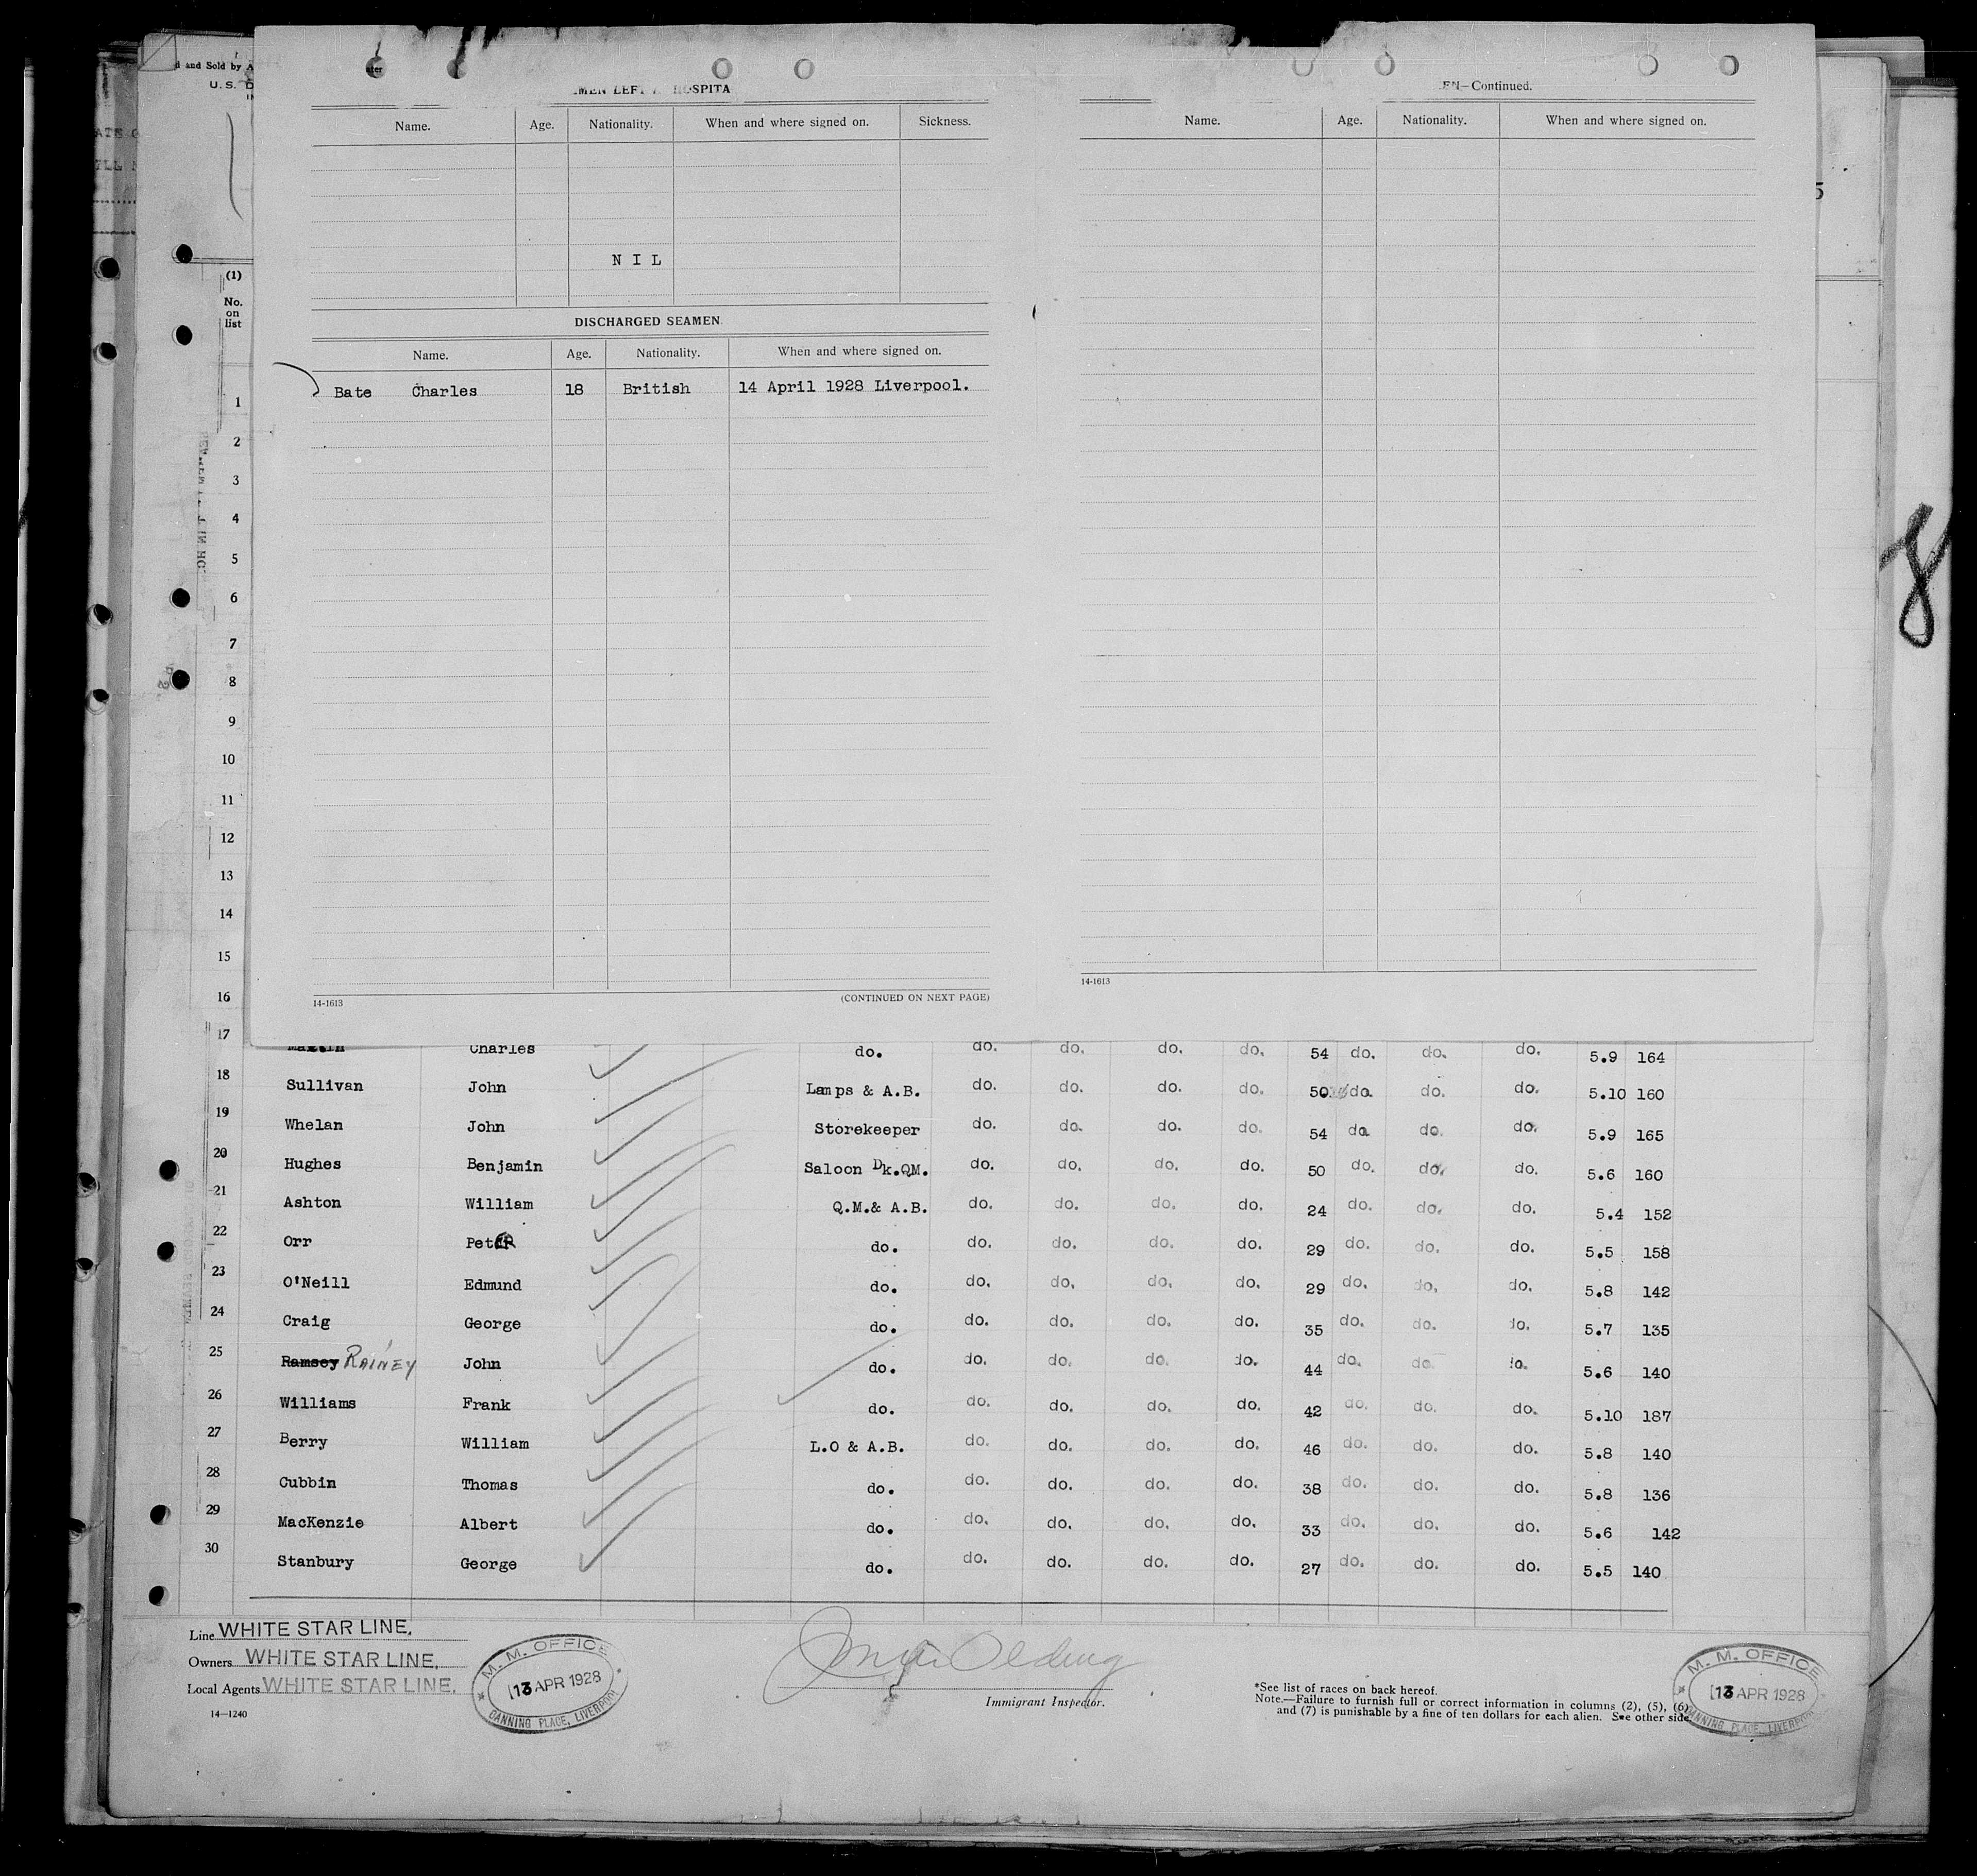 d and Sold by A
U. S. D
SEAMEN LEFT HOSPITA
Name. Age. Nationality. When and where signed on. Sickness.
N I L
DISCHARGED SEAMEN.
Name. Age. Nationality. When and where signed on.
Bate Charles 18 British 14 April 1928 Liverpool.
14-1613 (CONTINUED ON NEXT PAGE)
EN—Continued.
Name. Age. Nationality. When and where signed on.
14-1613
5
8
(1)
No.
on
list
1
2
3
4
5
6
7
8
9
10
11
12
13
14
15
16
17 Martin Charles do. do. do. do. do. 54 do. do. do. 5.9 164
18 Sullivan John Lamps & A.B. do. do. do. do. 50 do. do. do. 5.10 160
19 Whelan John Storekeeper do. do. do. do. 54 do do. do. 5.9 165
20 Hughes Benjamin Saloon Dk.QM. do. do. do. do. 50 do. do. do. 5.6 160
21 Ashton William Q.M.& A.B. do. do. do. do. 24 do. do. do. 5.4 152
22 Orr PetER do. do. do. do. do. 29 do. do. do. 5.5 158
23 O'Neill Edmund do. do. do. do. do. 29 do. do. do. 5.8 142
24 Craig George do. do. do. do. do. 35 do. do. do. 5.7 135
25 Ramsey RAINEY John do. do. do. do. do. 44 do. do. do. 5.6 140
26 Williams Frank do. do. do. do. do. 42 do. do. do. 5.10 187
27 Berry William L.O & A.B. do. do. do. do. 46 do. do. do. 5.8 140
28 Cubbin Thomas do. do. do. do. do. 38 do. do. do. 5.8 136
29 MacKenzie Albert do. do. do. do. do. 33 do. do. do. 5.6 142
30 Stanbury George do. do. do. do. do. 27 do. do. do. 5.5 140
Line WHITE STAR LINE.
Owners WHITE STAR LINE.
Local Agents WHITE STAR LINE.
14—1240
M. M. OFFICE
13 APR 1928
CANNING PLACE, LIVERPOOL
Immigrant Inspector.
*See list of races on back hereof.
Note.—Failure to furnish full or correct information in columns (2), (5), (6)
and (7) is punishable by a fine of ten dollars for each alien. See other side.
M. M. OFFICE
13 APR 1928
CANNING PLACE, LIVERPOOL